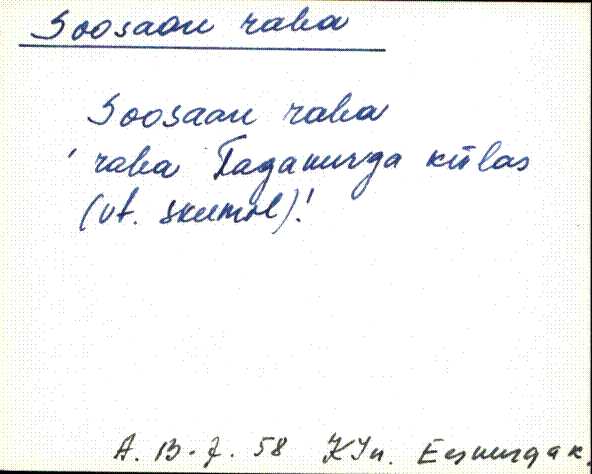 Soosaare raba
Soosaare raba
' raba Taganurga külas
(vt. skeemol)!
A. B-J. 58 KJn. Eesnurga k.